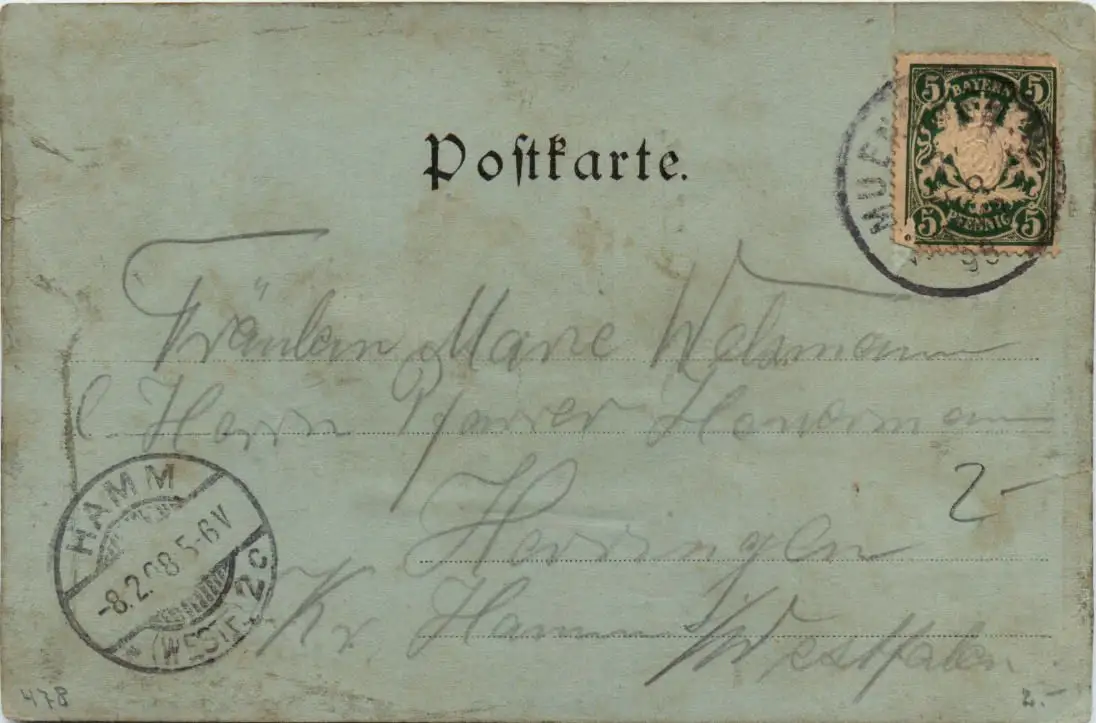 Postkarte.
5 BAYERN 5
5 PFENNIG 5
MUEN
98
Fräulein Marie Welsmann
Herrn Pfarrer
Herringen
2-
Kr. Hamm i/Westfalen.
HAMM
-8.2.98 5-6 V
* (WESTF.) 2c
478
2.-